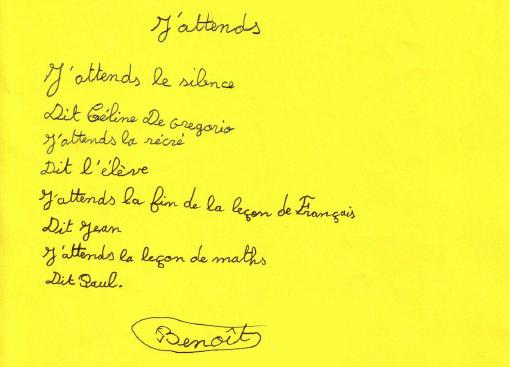 J'attends
J'attends le silence
Dit Céline De Gregorio
J'attends la récré
Dit l'élève
J'attends la fin de la leçon de Français
Dit Jean
J'attends la leçon de maths
Dit Paul.
Benoît